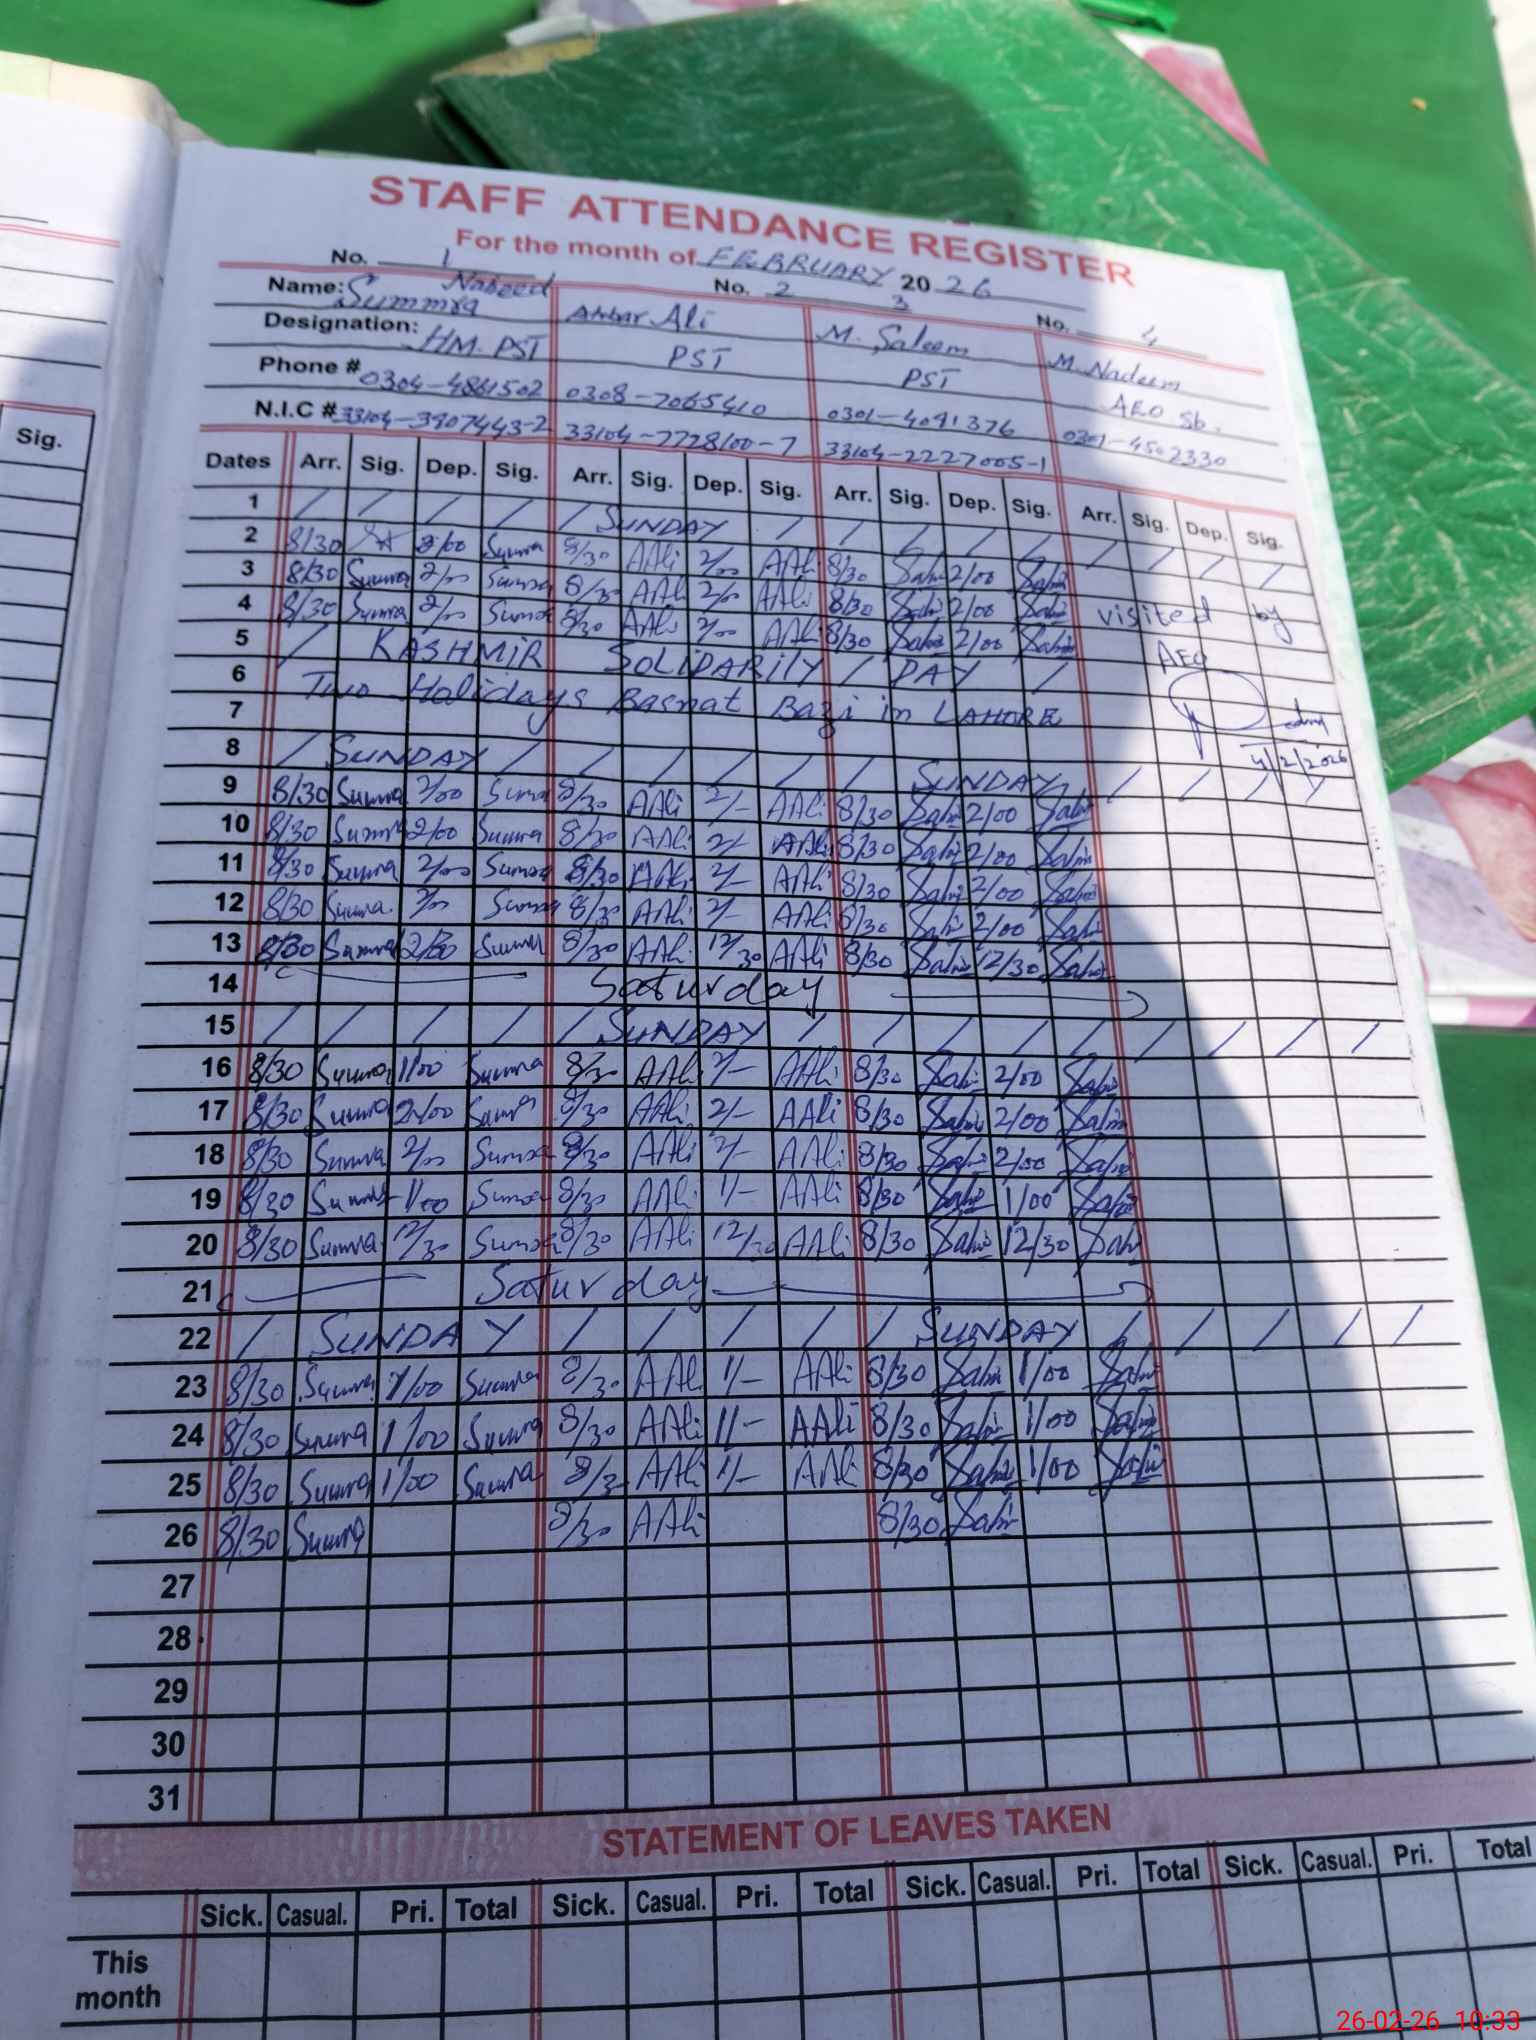 STAFF ATTENDANCE REGISTER
For the month of FEBRUARY 20 26
No. 1 No. 2 3 No. 4
Name: Summra Nabeed Akbar Ali M. Saleem M. Nadeem
Designation: HM. PST PST PST AEO Sb.
Phone # 0308-7065410 0301-4091376 0301-4502330
N.I.C # 33104-3907443-2 33104-7728100-7 33104-2227005-1
Sig.
Dates Arr. Sig. Dep. Sig. Arr. Sig. Dep. Sig. Arr. Sig. Dep. Sig. Arr. Sig. Dep. Sig.
1 / / / / / SUNDAY / / / / / / / / /
2 8/30 2/00 Sumra 8/30 AAli 2/00 AAli 8/30 Salim 2/00 Salim
3 8/30 Sumra 2/00 Sumra 8/30 AAli 2/00 AAli 8/30 Salim 2/00 Salim visited by
4 8/30 Sumra 2/00 Sumra 8/30 AAli 2/00 AAli 8/30 Salim 2/00 Salim AEO
5 / KASHMIR SOLIDARITY / DAY /
6 Two Holidays Basnat Bazi in LAHORE
7
4/2/2026
8 / SUNDAY / / / / / / SUNDAY / / / /
9 8/30 Sumra 2/00 Sumra 8/30 AAli 2/- AAli 8/30 Salim 2/00 Salim
10 8/30 Sumra 2/00 Sumra 8/30 AAli 2/- AAli 8/30 Salim 2/00 Salim
11 8/30 Sumra 2/00 Sumra 8/30 AAli 2/- AAli 8/30 Salim 2/00 Salim
12 8/30 Sumra 2/00 Sumra 8/30 AAli 2/- AAli 8/30 Salim 2/00 Salim
13 8/30 Sumra Sumra 8/30 AAli 12/30 AAli 8/30 Salim 12/30 Salim
14 Saturday
15 / / / / / SUNDAY / / / / / / / /
16 8/30 Sumra 1/00 Sumra 8/30 AAli 2/- AAli 8/30 Salim 2/00 Salim
17 8/30 Sumra 2/00 Sumra 8/30 AAli 2/- AAli 8/30 Salim 2/00 Salim
18 8/30 Sumra 2/00 Sumra 8/30 AAli 2/- AAli 8/30 Salim 2/00 Salim
19 8/30 Sumra 1/00 Sumra 8/30 AAli 1/- AAli 8/30 Salim 1/00 Salim
20 8/30 Sumra 12/30 Sumra 8/30 AAli 12/30 AAli 8/30 Salim 12/30 Salim
21 Saturday
22 / SUNDAY / / / / / SUNDAY / / / / /
23 8/30 Sumra 1/00 Sumra 8/30 AAli 1/- AAli 8/30 Salim 1/00 Salim
24 8/30 Sumra 1/00 Sumra 8/30 AAli 1/- AAli 8/30 Salim 1/00 Salim
25 8/30 Sumra 1/00 Sumra 8/30 AAli 1/- AAli 8/30 Salim 1/00 Salim
26 8/30 Sumra 8/30 AAli 8/30 Salim
27
28
29
30
31
STATEMENT OF LEAVES TAKEN
Sick. Casual. Pri. Total Sick. Casual. Pri. Total Sick. Casual. Pri. Total Sick. Casual. Pri. Total
This
month
26-02-26 10:33